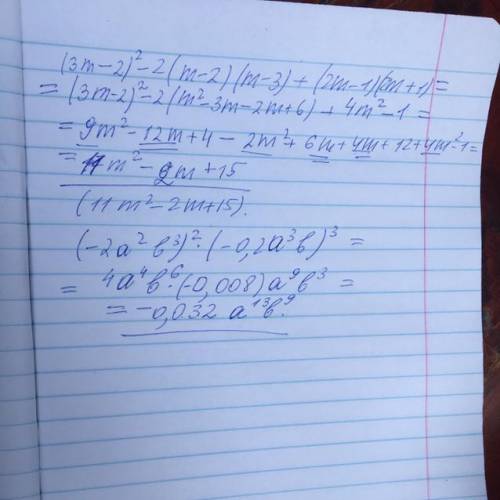 (3m-2)²-2(m-2)(m-3)+(2m-1)(2m+1)=
=(3m-2)²-2(m²-3m-2m+6)+4m²-1=
=9m²-12m+4-2m²+6m+4m+12+4m²-1=
=11m²-2m+15
(11m²-2m+15).
(-2a²b³)²·(-0,2a³b)³=
=4a⁴b⁶·(-0,008)a⁹b³=
=-0,032a¹³b⁹.